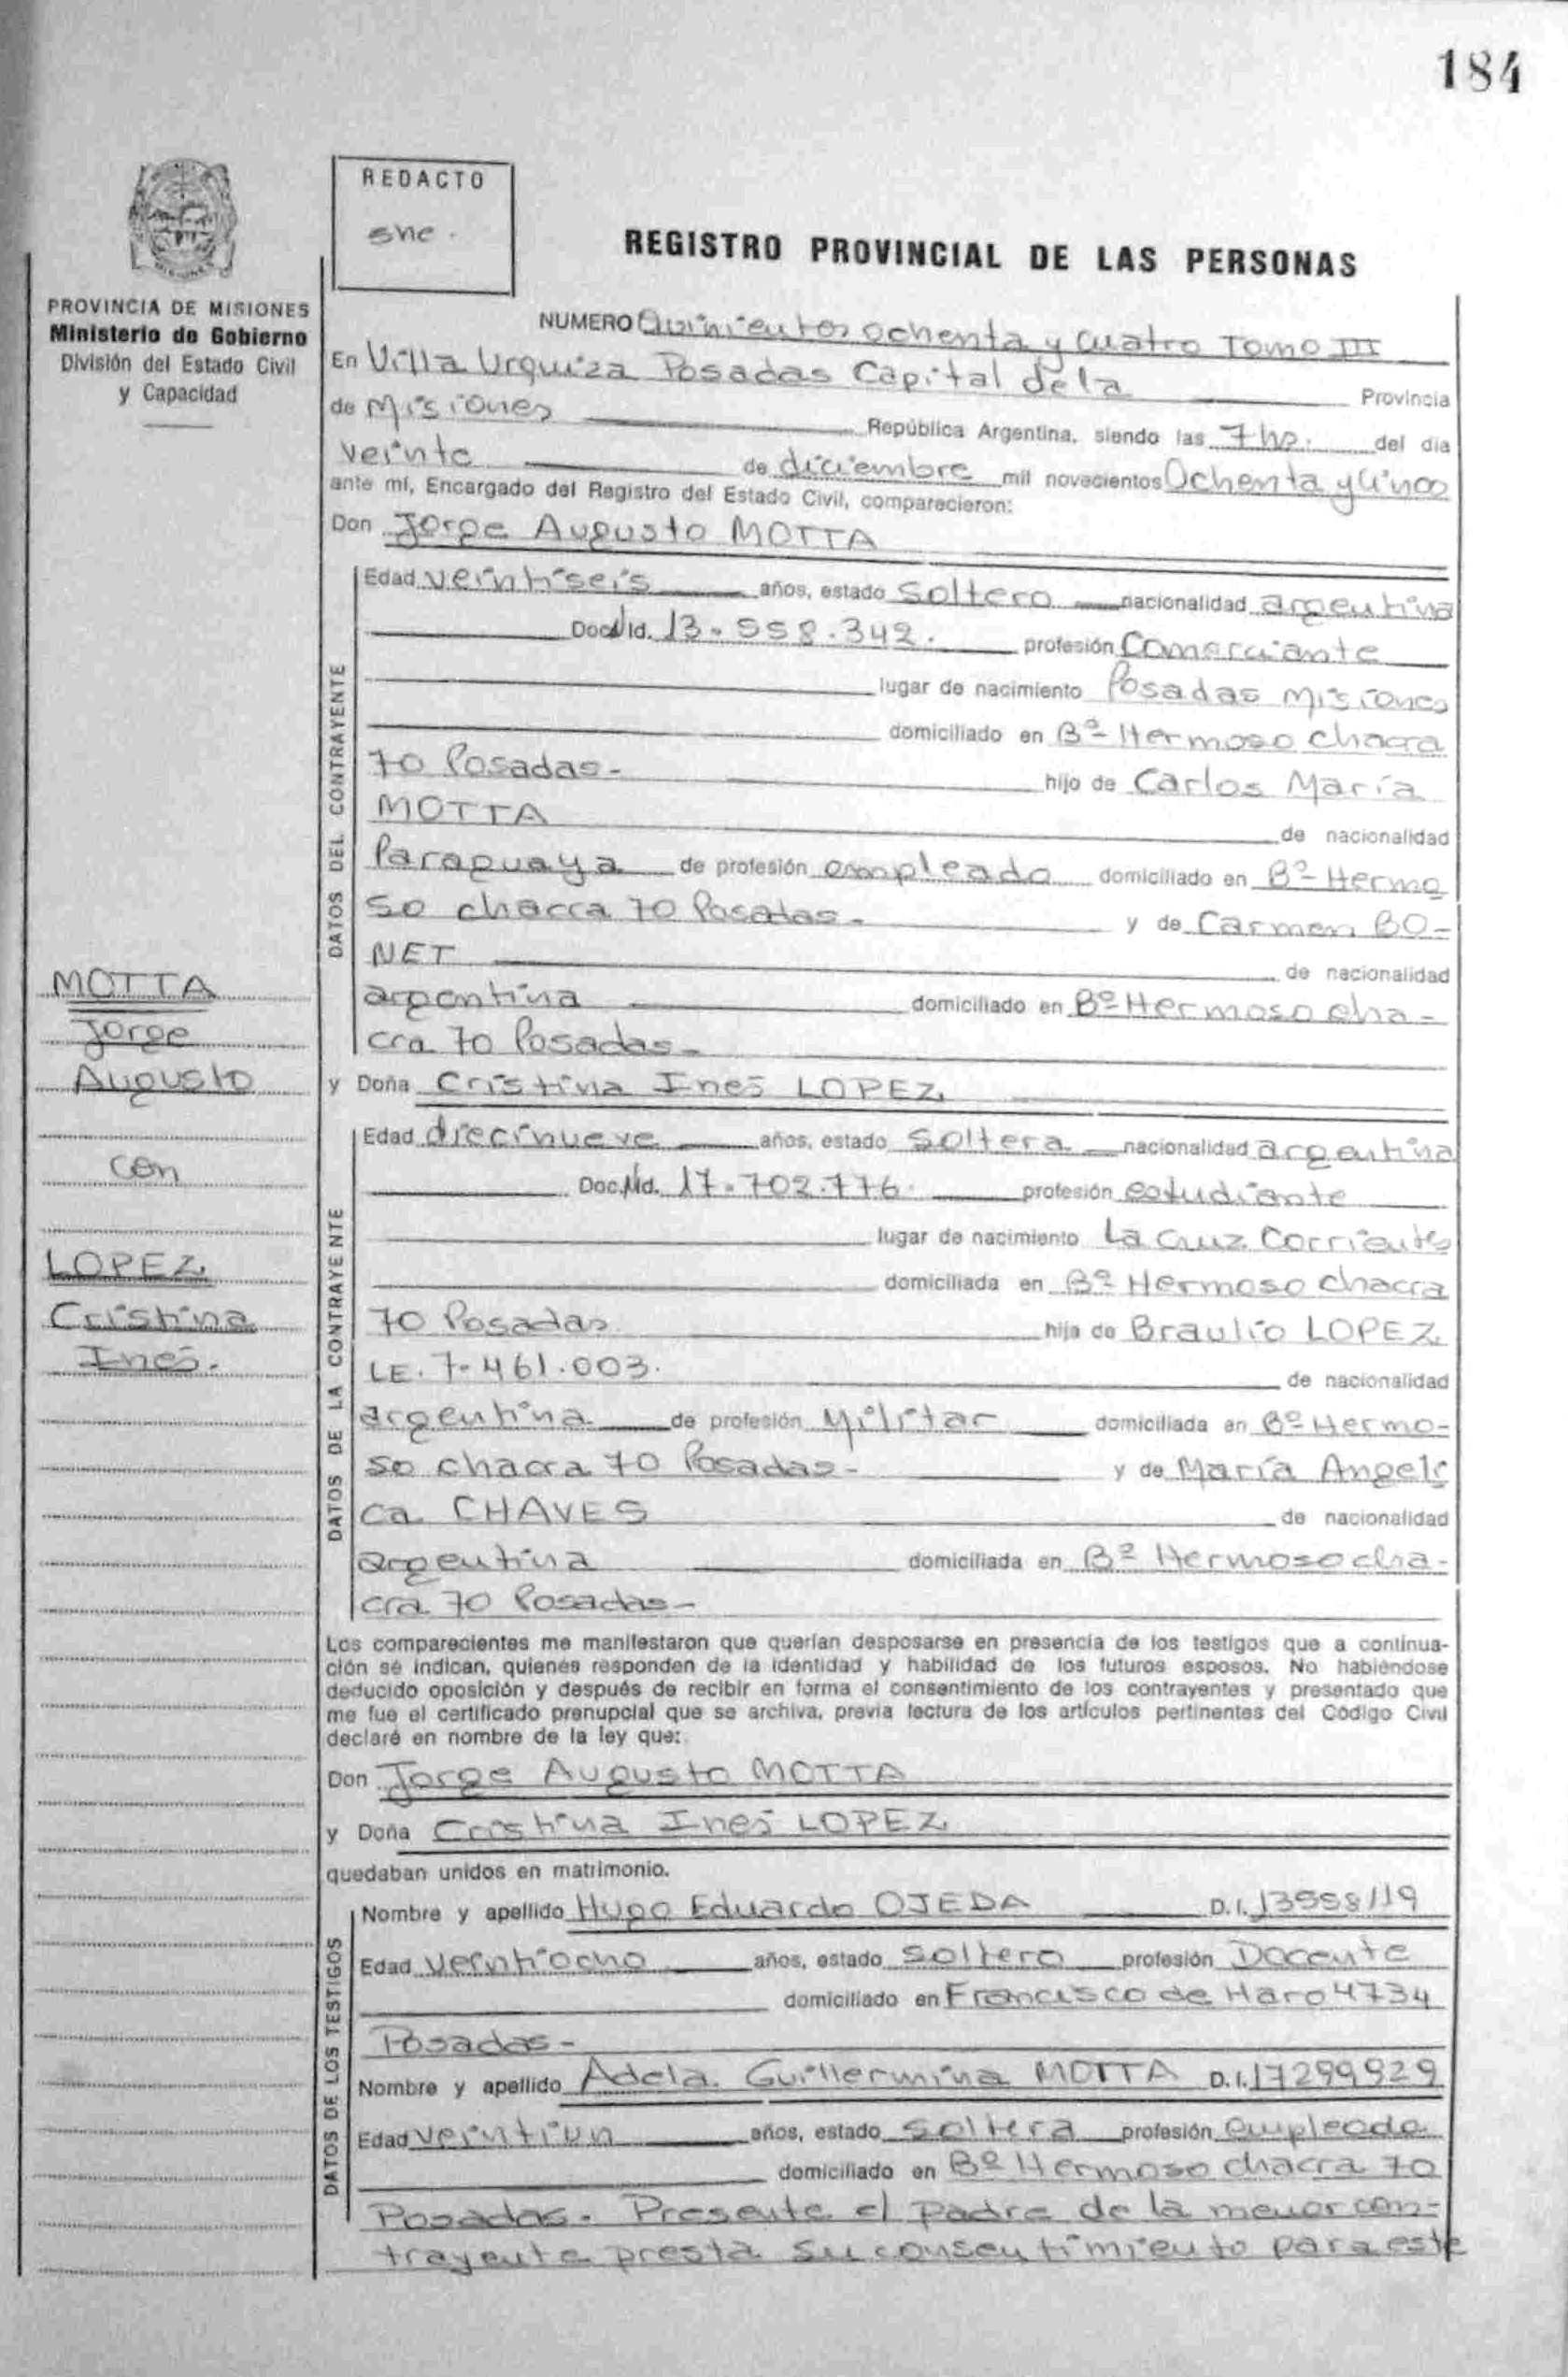 184
REDACTO
sne.
REGISTRO PROVINCIAL DE LAS PERSONAS
MISIONES
PROVINCIA DE MISIONES
Ministerio de Gobierno
División del Estado Civil
y Capacidad
NUMERO Quinientos ochenta y cuatro Tomo III
En Villa Urquiza Posadas Capital de la Provincia
de Misiones República Argentina, siendo las 7 hs. del día
veinte de diciembre mil novecientos Ochenta y Cinco
ante mí, Encargado del Registro del Estado Civil, comparecieron:
Don Jorge Augusto MOTTA
DATOS DEL CONTRAYENTE
Edad veintiseis años, estado soltero nacionalidad argentina
Doc. Id. 13.558.342. profesión Comerciante
lugar de nacimiento Posadas Misiones
domiciliado en Bº Hermoso chacra
70 Posadas- hijo de Carlos María
MOTTA de nacionalidad
Paraguaya de profesión empleado domiciliado en Bº Hermo
so chacra 70 Posadas- y de Carmen BO-
NET de nacionalidad
argentina domiciliado en Bº Hermoso cha-
cra 70 Posadas-
y Doña Cristina Inés LOPEZ
DATOS DE LA CONTRAYENTE
Edad diecinueve años, estado soltera nacionalidad argentina
Doc. Id. 17.702.776. profesión estudiante
lugar de nacimiento La Cruz Corrientes
domiciliada en Bº Hermoso chacra
70 Posadas hija de Braulio LOPEZ
LE. 7.461.003. de nacionalidad
argentina de profesión Militar domiciliada en Bº Hermo-
so chacra 70 Posadas- y de María Angeli
ca CHAVES de nacionalidad
argentina domiciliada en Bº Hermoso cha-
cra 70 Posadas-
MOTTA
Jorge
Augusto
con
LOPEZ
Cristina
Inés.
Los comparecientes me manifestaron que querían desposarse en presencia de los testigos que a continua-
ción se indican, quienes responden de la identidad y habilidad de los futuros esposos. No habiéndose
deducido oposición y después de recibir en forma el consentimiento de los contrayentes y presentado que
me fue el certificado prenupcial que se archiva, previa lectura de los artículos pertinentes del Código Civil
declaré en nombre de la ley que:
Don Jorge Augusto MOTTA
y Doña Cristina Inés LOPEZ
quedaban unidos en matrimonio.
DATOS DE LOS TESTIGOS
Nombre y apellido Hugo Eduardo OJEDA D.I. 13558119
Edad veintiocho años, estado soltero profesión Docente
domiciliado en Francisco de Haro 4734
Posadas-
Nombre y apellido Adela Guillermina MOTTA D.I. 17299929
Edad veintiun años, estado soltera profesión empleada
domiciliado en Bº Hermoso chacra 70
Posadas. Presente el padre de la menor con-
trayente presta su consentimiento para este